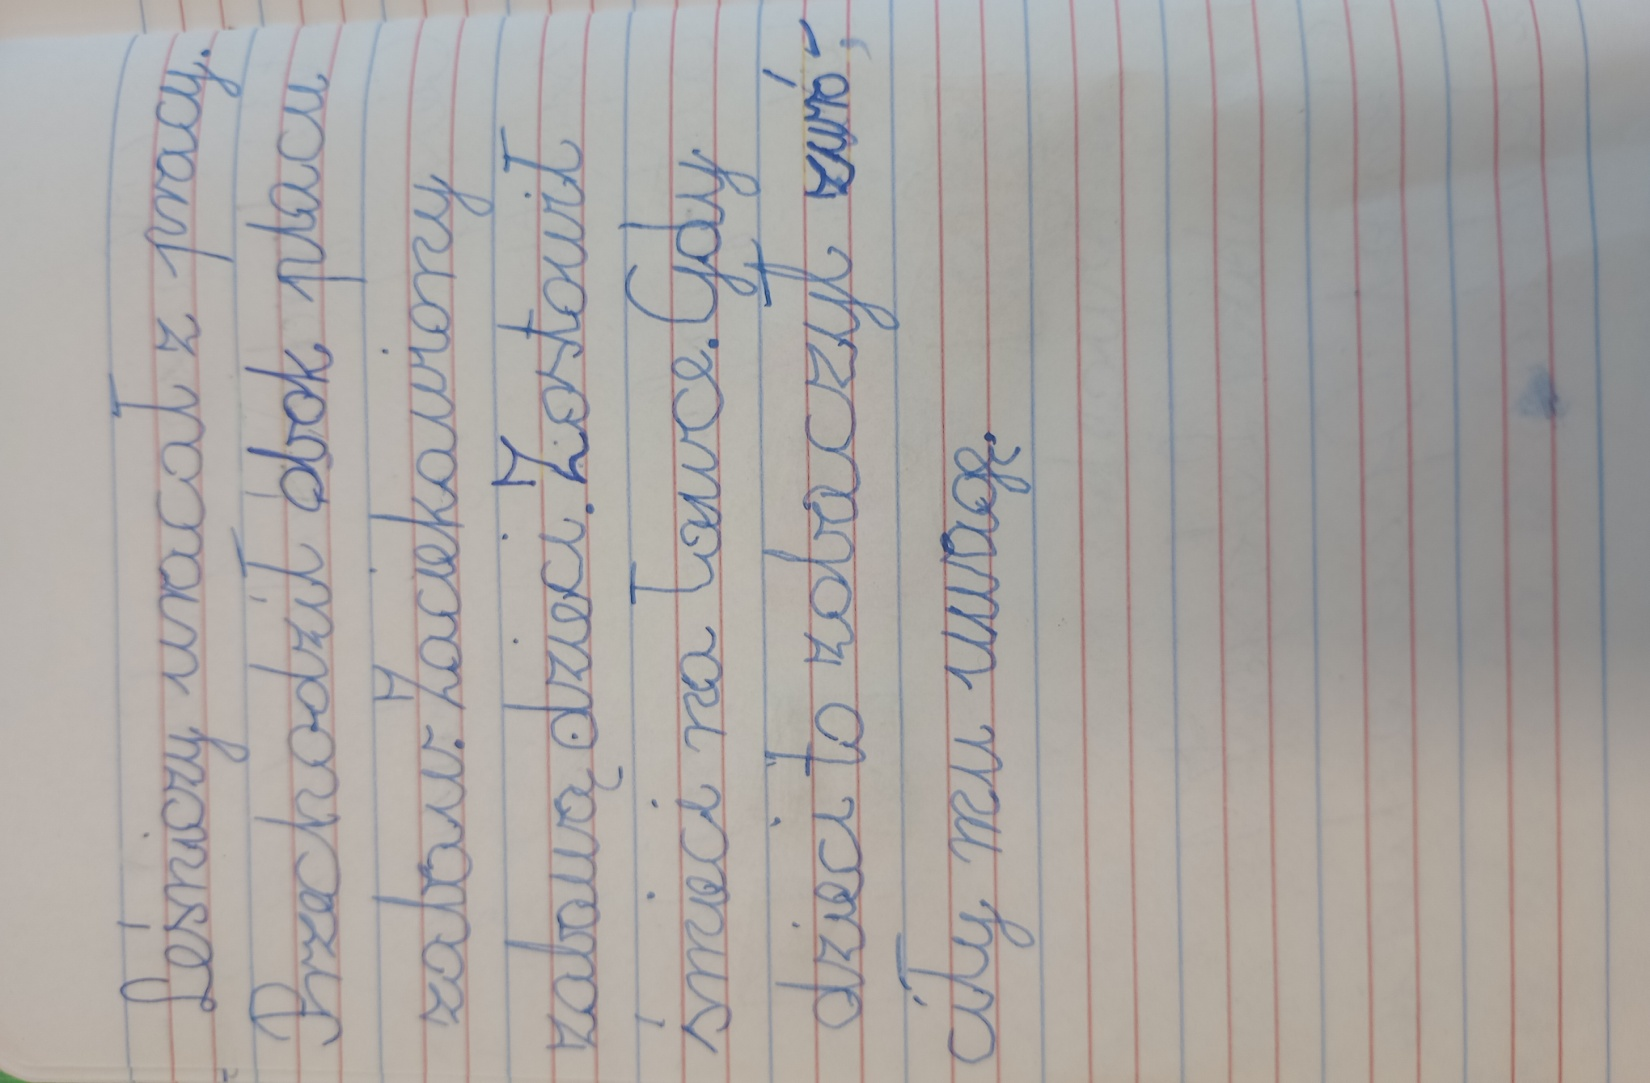 Leśniczy wracał z pracy.
Przechodził obok placu
zabaw. Zaciekawiony
zabawą dzieci. Zostawił
śmieci na ławce. Gdy
dzieci to zobaczyły zwró-
ciły mu uwagę.